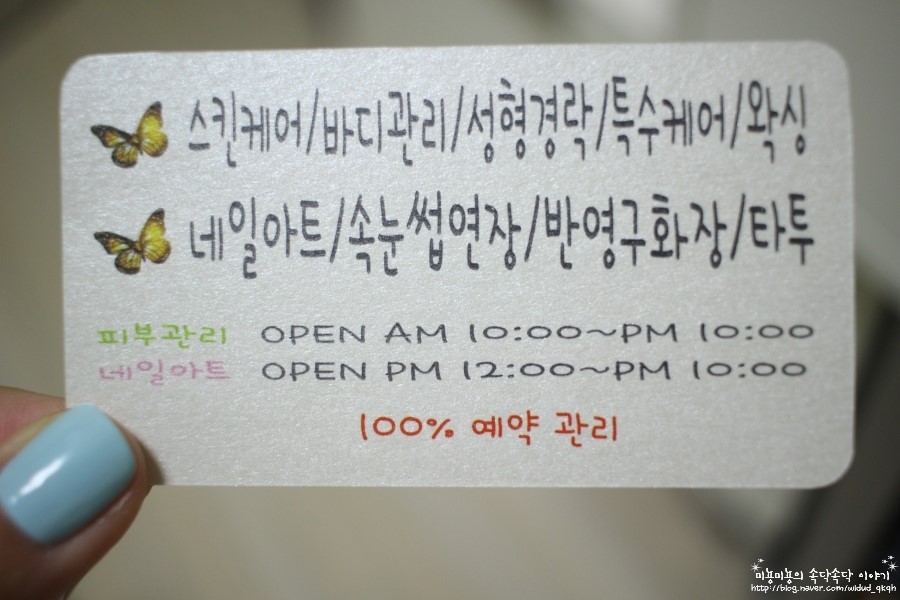 스킨케어/바디관리/성형경락/특수케어/왁싱
네일아트/속눈썹연장/반영구화장/타투
피부관리 OPEN AM 10:00~PM 10:00
네일아트 OPEN PM 12:00~PM 10:00
100% 예약 관리
미뇽미뇽의 속닥속닥 이야기
http://blog.naver.com/wldud_qkqh